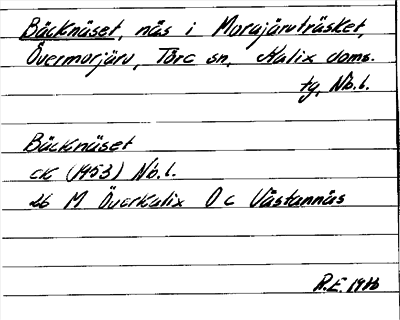 Bäcknäset, näs i Morajärvträsket,
Övermorjärv, Töre sn, Kalix doms.
tg, Nb.l.
Bäcknäset
ek (1953) Nb.l.
26 M Överkalix O c Västannäs
R.E. 1976